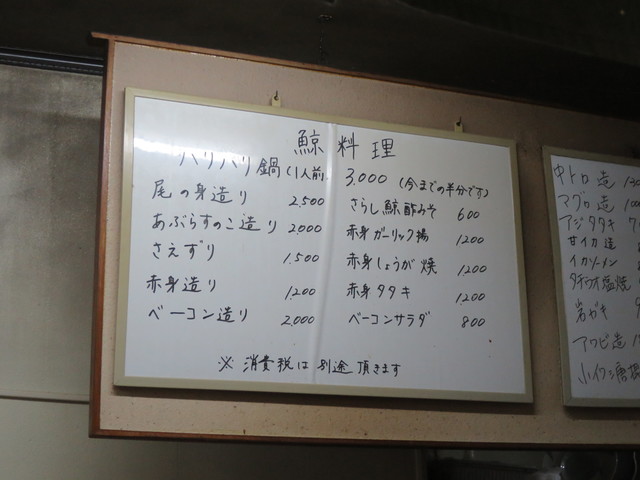 鯨料理
ハリハリ鍋(1人前) 3,000 (今までの半分です)
尾の身造り 2,500
あぶらすのこ造り 2,000
さえずり 1,500
赤身造り 1,200
ベーコン造り 2,000
さらし鯨酢みそ 600
赤身ガーリック揚 1,200
赤身しょうが焼 1,200
赤身タタキ 1,200
ベーコンサラダ 800
※ 消費税は別途頂きます
中トロ造
マグロ造
アジタタキ
甘イカ造
イカソーメン
タチウオ塩焼
岩ガキ
アワビ造
小イワシ唐揚